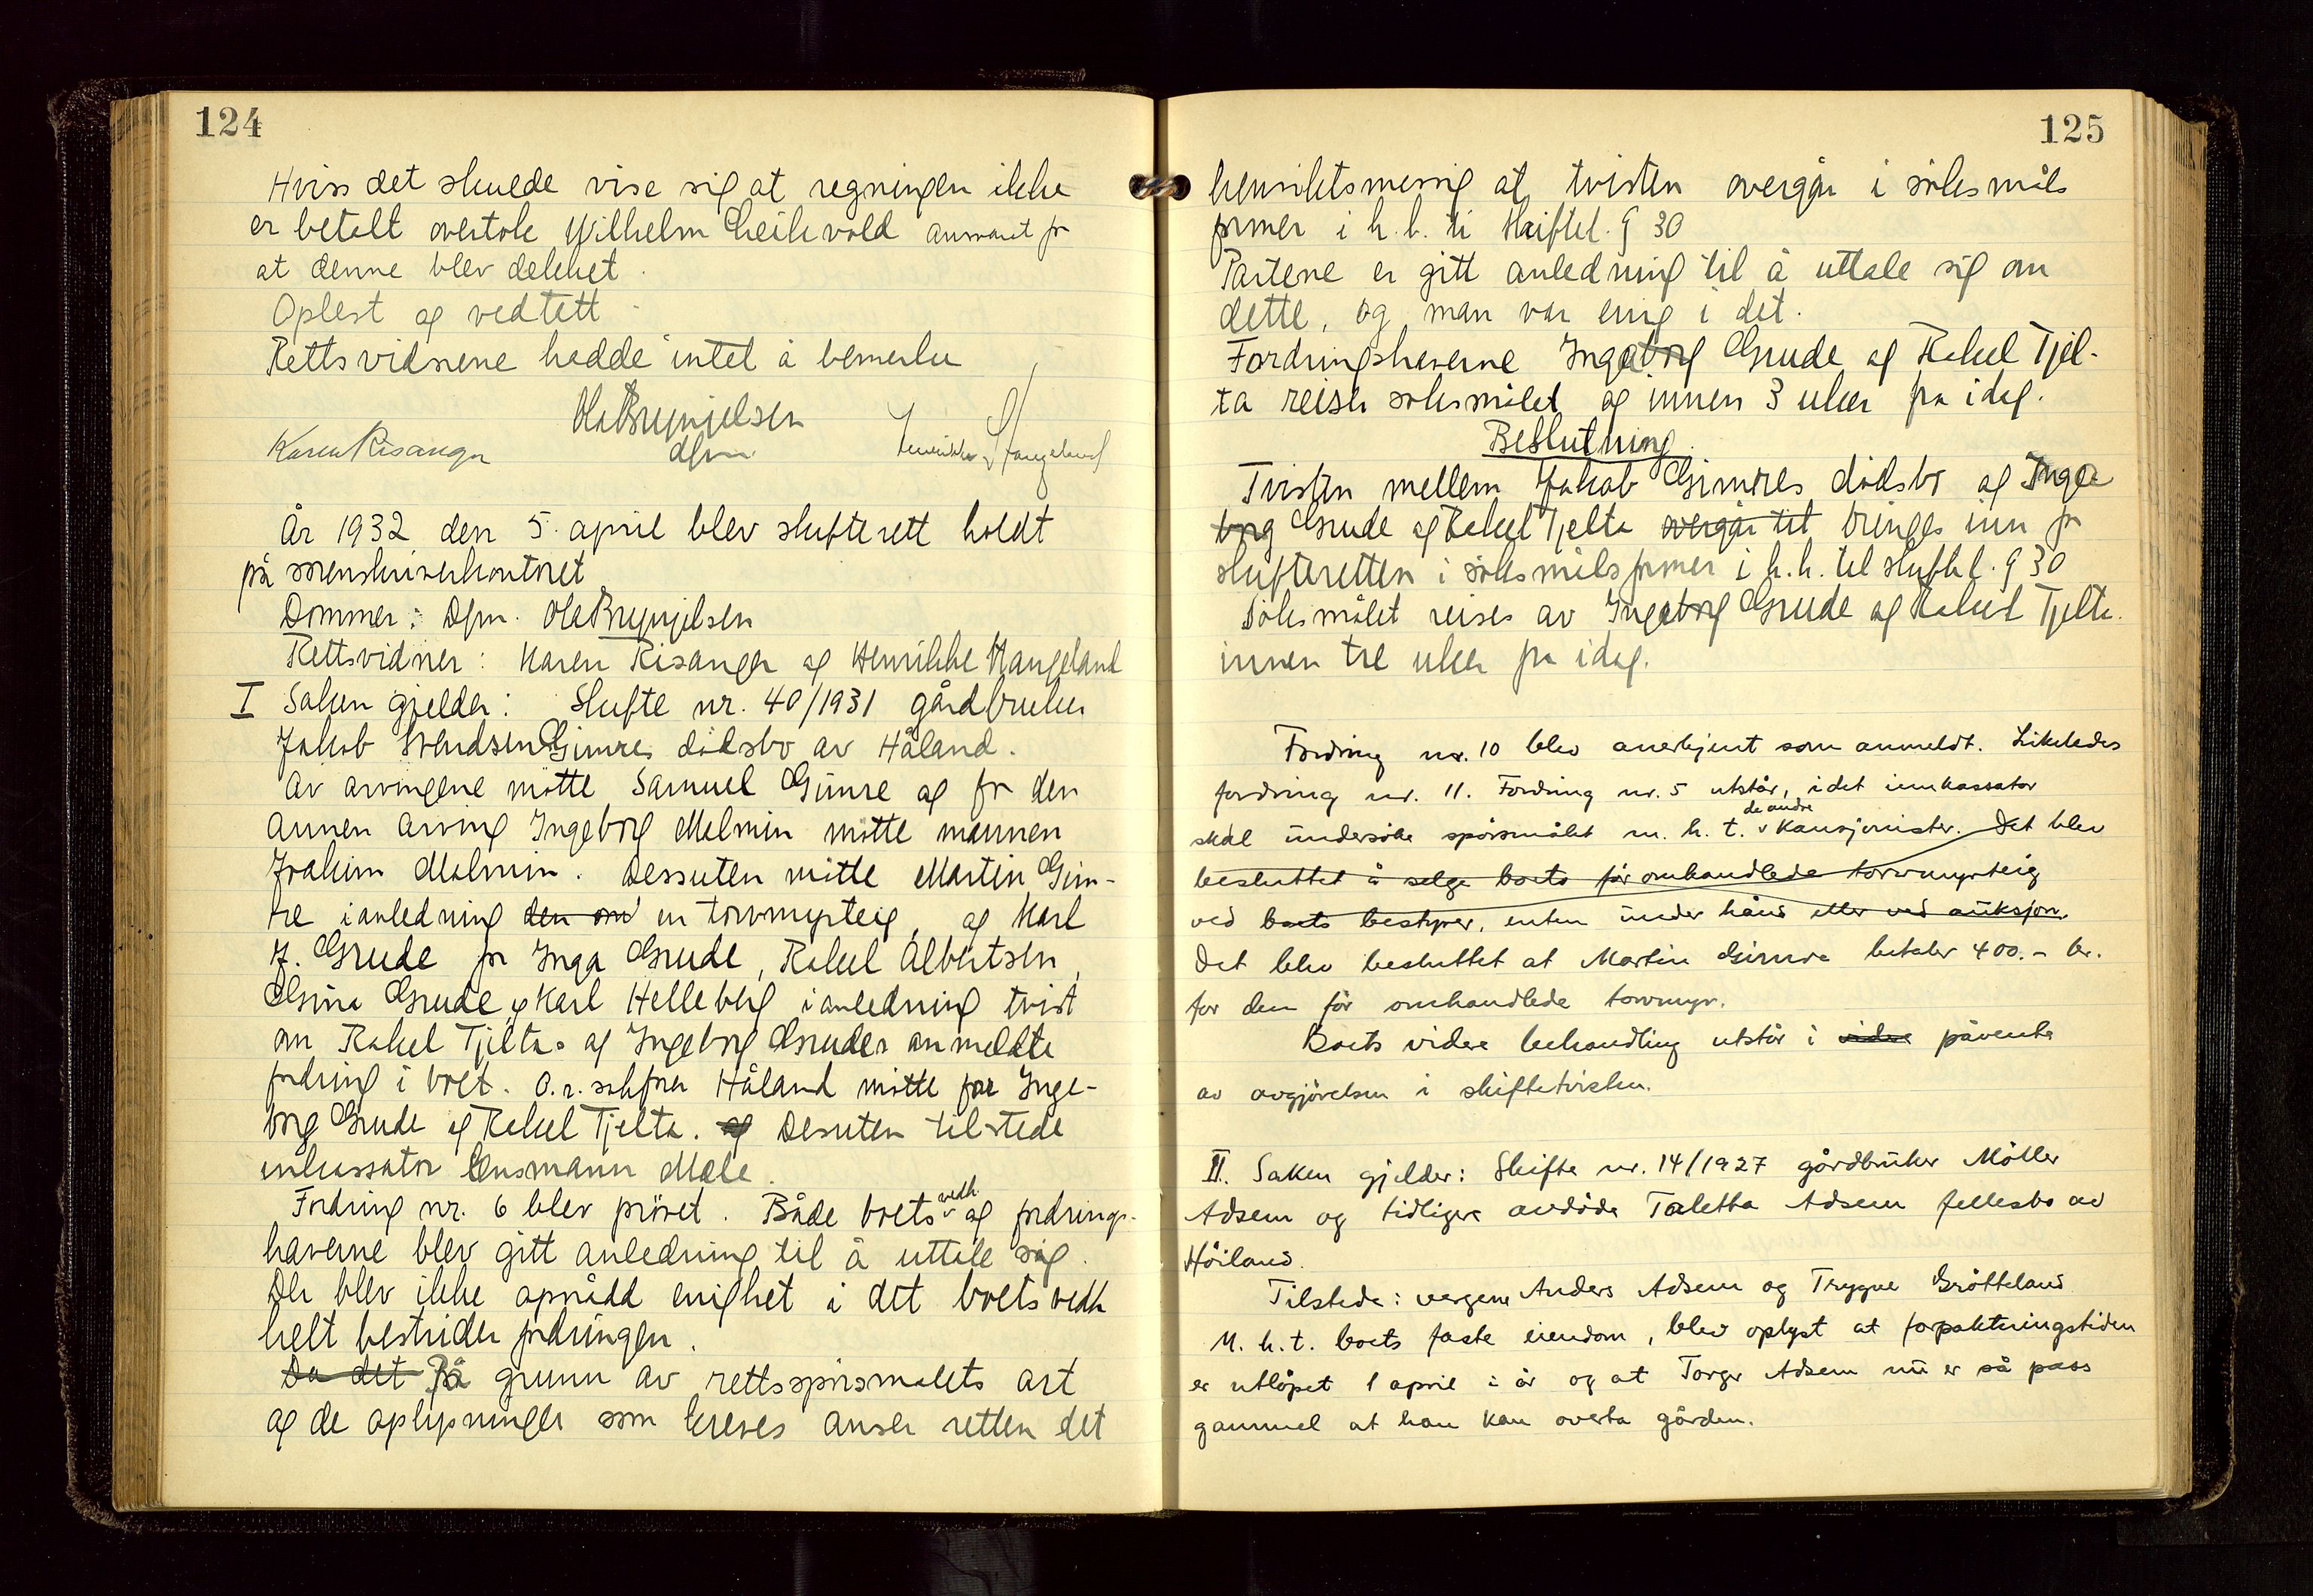 124
Hviss det skulde vise sig at regningen ikke
er betalt overtok Wilhelm Leikvold ansvaret fr
at denne blev dekket.
Oplest og vedtatt.
Rettsvidnene hadde intet å bemerke
Ola Brynjelsen
dfm
Karen Risanger
Henrikke Stangeland
År 1932 den 5. april blev skifterett holdt
på sorenskriverkontoret
Dommer: Dfm. Ola Brynjelsen
Rettsvidner: Karen Risanger og Henrikke Stangeland
I Saken gjelder: Skifte nr. 40/1931 gårdbruker
Jakob Svendsen Gimres dödsbo av Håland.
Av arvingene mötte Samuel Gimre og fr den
annen arving Ingeborg Malmin mötte mannen
Joakim Malmin. Dessuten mötte Martin Gim-
re i anledning den om en torvmyrteig, og Karl
J. Grude fr Inga Grude, Rakel Albertsen,
Gina Grude, og Karl Helleberg i anledning tvist
om Rakel Tjeltas og Ingeborg Grudes anmeldte
fordring i boet. O.r.sakfrer Håland mötte for Inge-
borg Grude og Rakel Tjelta. og Desuten tilstede
inkassator Lensmann Mæle.
Fordring nr. 6 blev prövet. Både boets vedk. og fordrings-
haverne blev gitt anledning til å uttale sig.
Der blev ikke opnådd enighet i det boets vedk
helt bestrider fordringen.
Da det På grunn av rettsspörsmålets art
og de oplysninger som kreves anser retten det
125
hensiktsmessig at tvisten overgår i söksmåls
former i h. h. til skiftel. § 30
Partene er gitt anledning til å uttale sig om
dette, og man var enig i det.
Fordringshaverne Ingeborg Grude og Rakel Tjel-
ta reiser söksmålet og innen 3 uker fra idag.
Beslutning.
Tvisten mellem Jakob Gimres dödsbo og Inge
borg Grude og Rakel Tjelta overgår til bringes inn fr
skifteretten i söksmåls former i h. h. til skiftel. § 30
Söksmålet reises av Ingeborg Grude og Rakel Tjelta.
innen tre uker fra idag.
Fordring nr. 10 blev anerkjent som anmeldt. Likeledes
fordring nr. 11. Fordring nr. 5 utstår, idet innkassator
skal undersöke spörsmålet m. h. t. de andre kausjonister. Det blev
besluttet å selge boets för omhandlede torvmyrteig
ved boets bestyrer, enten under hånd eller ved auksjon.
Det blev besluttet at Martin Gimre betaler 400.- kr.
for den för omhandlede torvmyr.
Boets videre behandling utstår i videre påvente
av avgjörelsen i skiftetvisten.
II. Saken gjelder: Skifte nr. 14/1927 gårdbruker Möller
Adsem og tidligere avdöde Taletta Adsem fellesbo av
Höiland.
Tilstede: vergene Anders Adsem og Trygve Grötteland
M. h. t. boets faste eiendom, blev oplyst at forpaktningstiden
er utlöpet 1 april i år og at Torger Adsem nu er så pass
gammel at han kan overta gården.